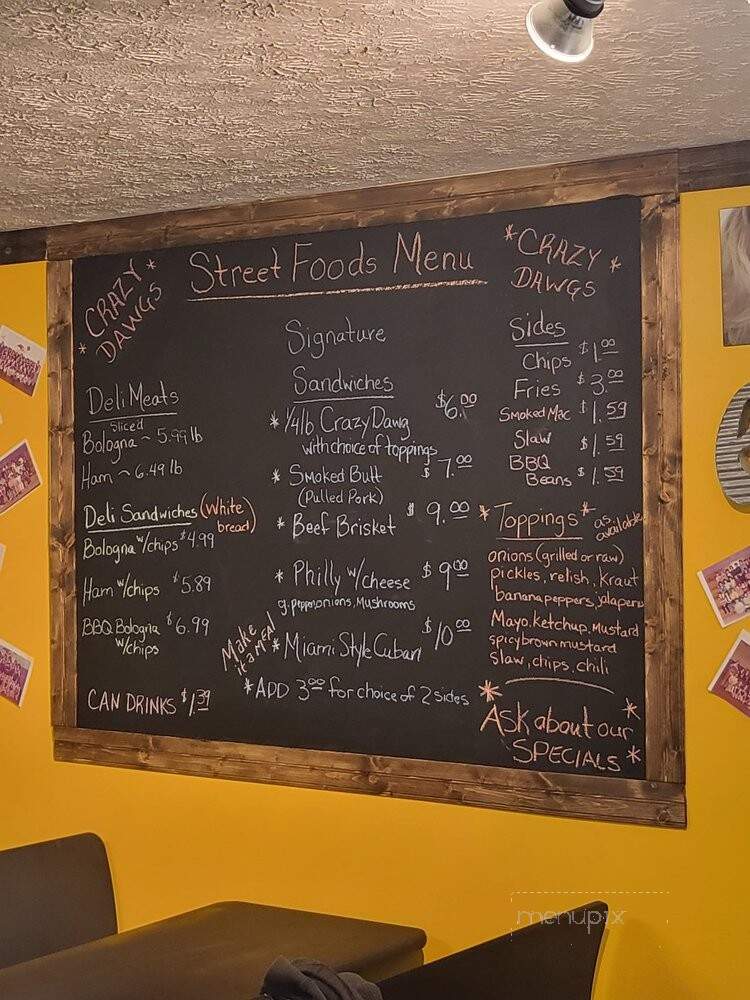 * CRAZY *
DAWGS
Street Foods Menu
* CRAZY *
DAWGS
Deli Meats
Sliced
Bologna ~ 5.99 lb
Ham ~ 6.49 lb
Deli Sandwiches (White
bread)
Bologna w/chips $4.99
Ham w/chips $5.89
BBQ Bologna $6.99
w/chips
CAN DRINKS $1.39
Signature
Sandwiches
* 1/4 lb Crazy Dawg $6.00
with choice of toppings
* Smoked Butt $7.00
(Pulled Pork)
* Beef Brisket $9.00
* Philly w/cheese $9.00
g.pepp, onions, Mushrooms
Make
it a MEAL
* Miami Style Cuban $10.00
* ADD 3.00 for choice of 2 sides
Sides
Chips $1.00
Fries $3.00
Smoked Mac $1.59
Slaw $1.59
BBQ
Beans $1.59
* Toppings * as
available
onions (grilled or raw)
pickles, relish, kraut
banana peppers, jalapeno
Mayo, ketchup, Mustard
spicy brown mustard
slaw, chips, chili
* Ask about our *
SPECIALS *
menupix